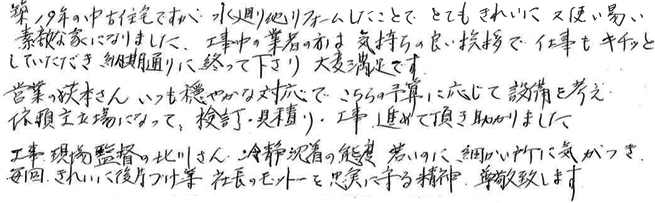 築19年の中古住宅ですが 水廻り他リフォームしたことで とてもきれいに 又使い易い
素敵な家になりました、工事中の業者の方は 気持ちの良い挨拶で 仕事も キチッと
していただき 納期通りに終って下さり 大変満足です
営業の さん いつも穏やかな対応で こちらの予算に応じて 設備を考え
依頼主立場になって、検討・見積り・工事 進めて頂き助かりました
工事現場監督の北川さん 冷静沈着の態度 若いのに 細かい所に気がつき、
毎回 きれいに後片づけ等 社長のモットーを忠実に守る精神 尊敬致します